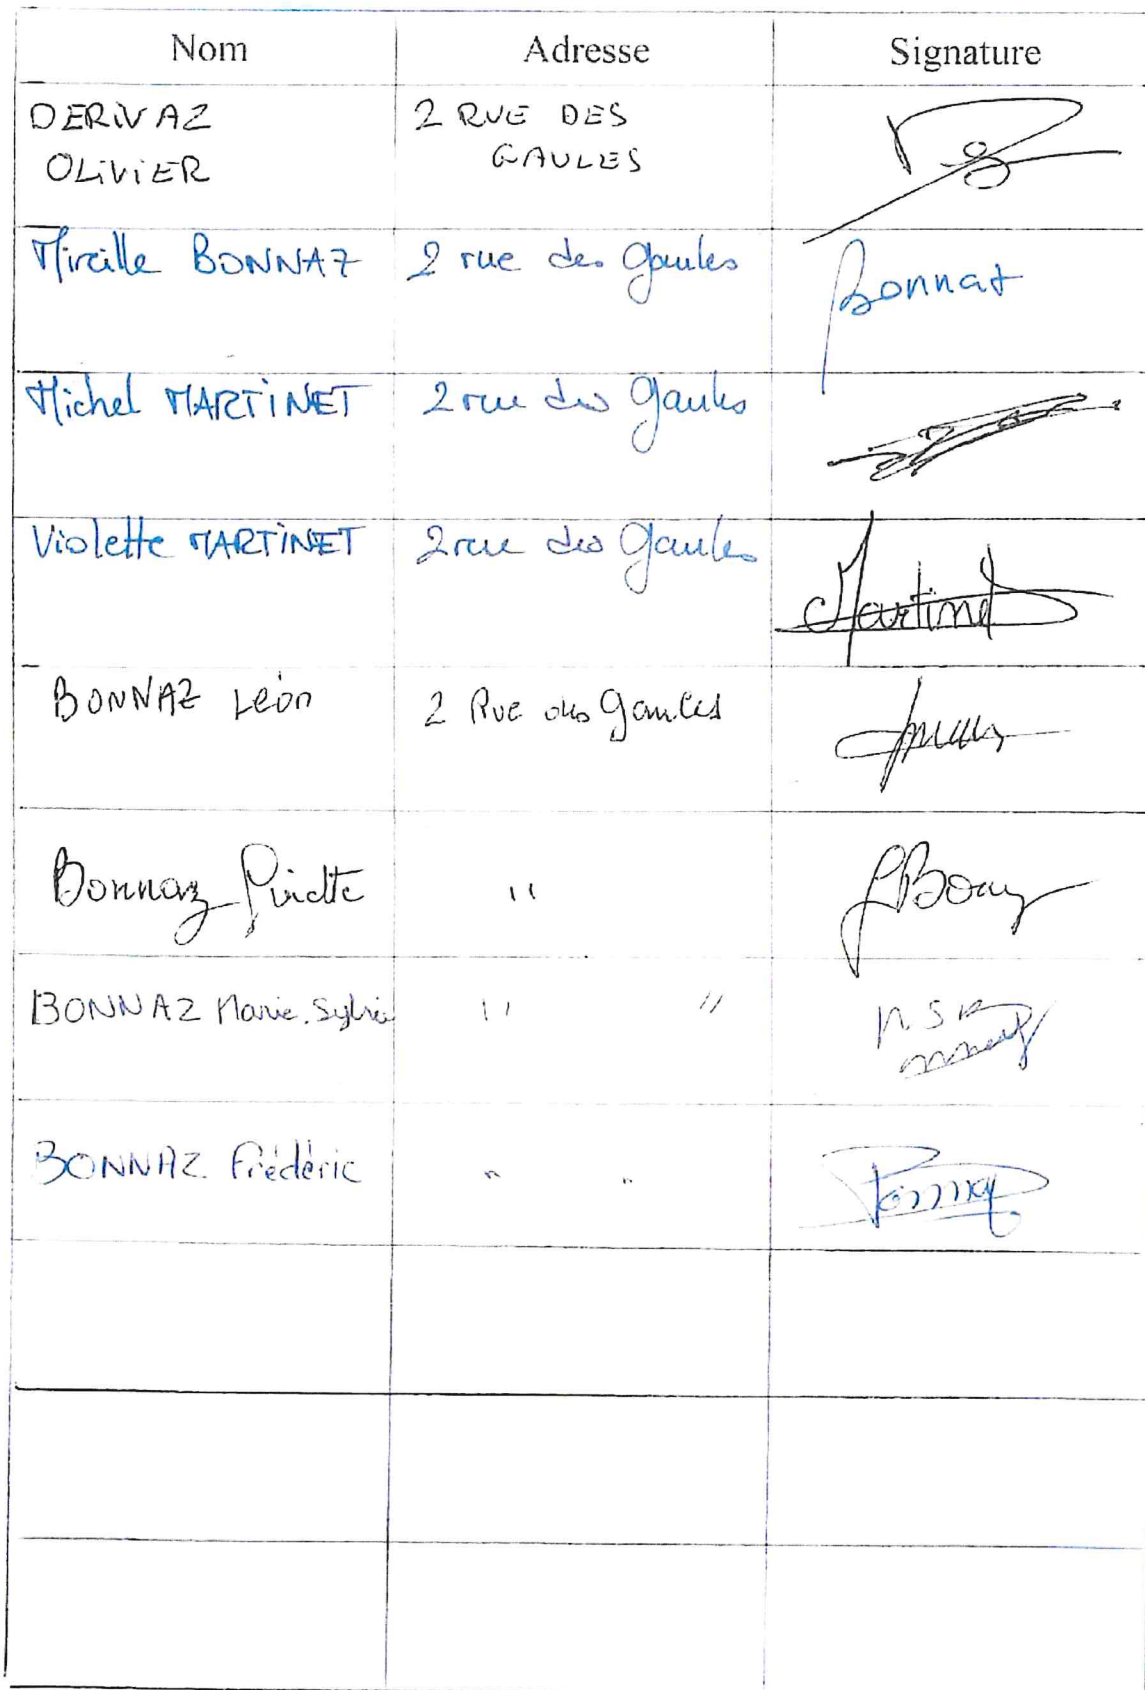 Nom Adresse Signature
DERIVAZ 2 RUE DES
OLIVIER GAULES
Mireille BONNAZ 2 rue des Gaules
Bonnaz
Michel MARTINET 2 rue des Gaules
Violette MARTINET 2 rue des Gaules
Martinet
BONNAZ Léon 2 Rue des Gaules
Bonnaz "
BONNAZ Marie.Sylvie " "
BONNAZ Frédéric " "